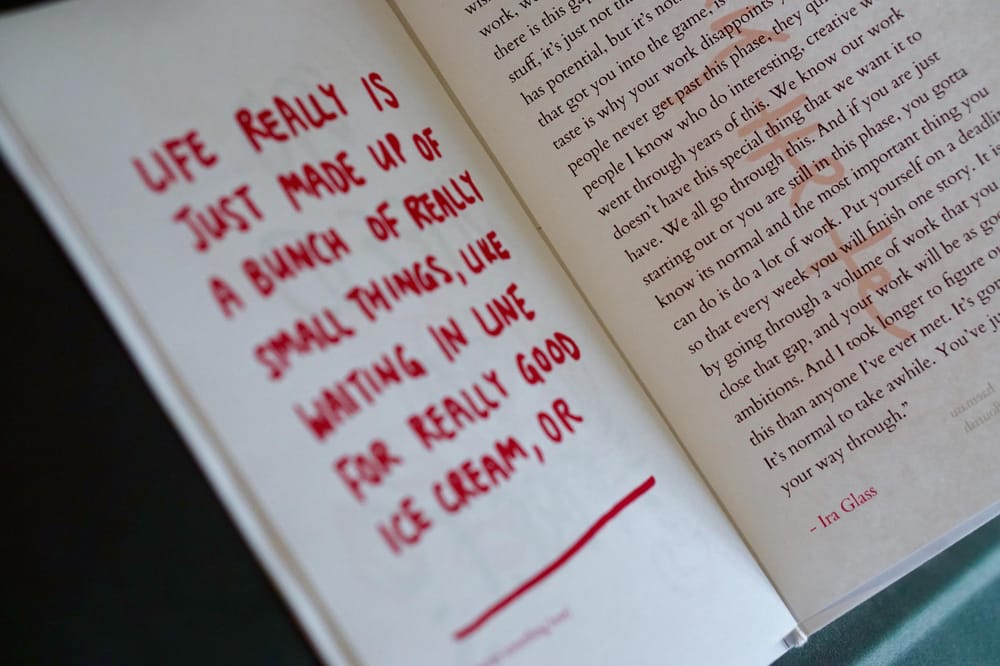 LIFE REALLY IS
JUST MADE UP OF
A BUNCH OF REALLY
SMALL THINGS, LIKE
WAITING IN LINE
FOR REALLY GOOD
ICE CREAM, OR
work, w
there is this ga
stuff, it's just not th
has potential, but it's not
that got you into the game, is
taste is why your work disappoints
people never get past this phase, they qui
people I know who do interesting, creative w
went through years of this. We know our work
doesn't have this special thing that we want it to
have. We all go through this. And if you are just
starting out or you are still in this phase, you gotta
know its normal and the most important thing you
can do is do a lot of work. Put yourself on a deadlin
so that every week you will finish one story. It is
by going through a volume of work that you
close that gap, and your work will be as goo
ambitions. And I took longer to figure o
this than anyone I've ever met. It's gon
It's normal to take awhile. You've ju
your way through."
– Ira Glass